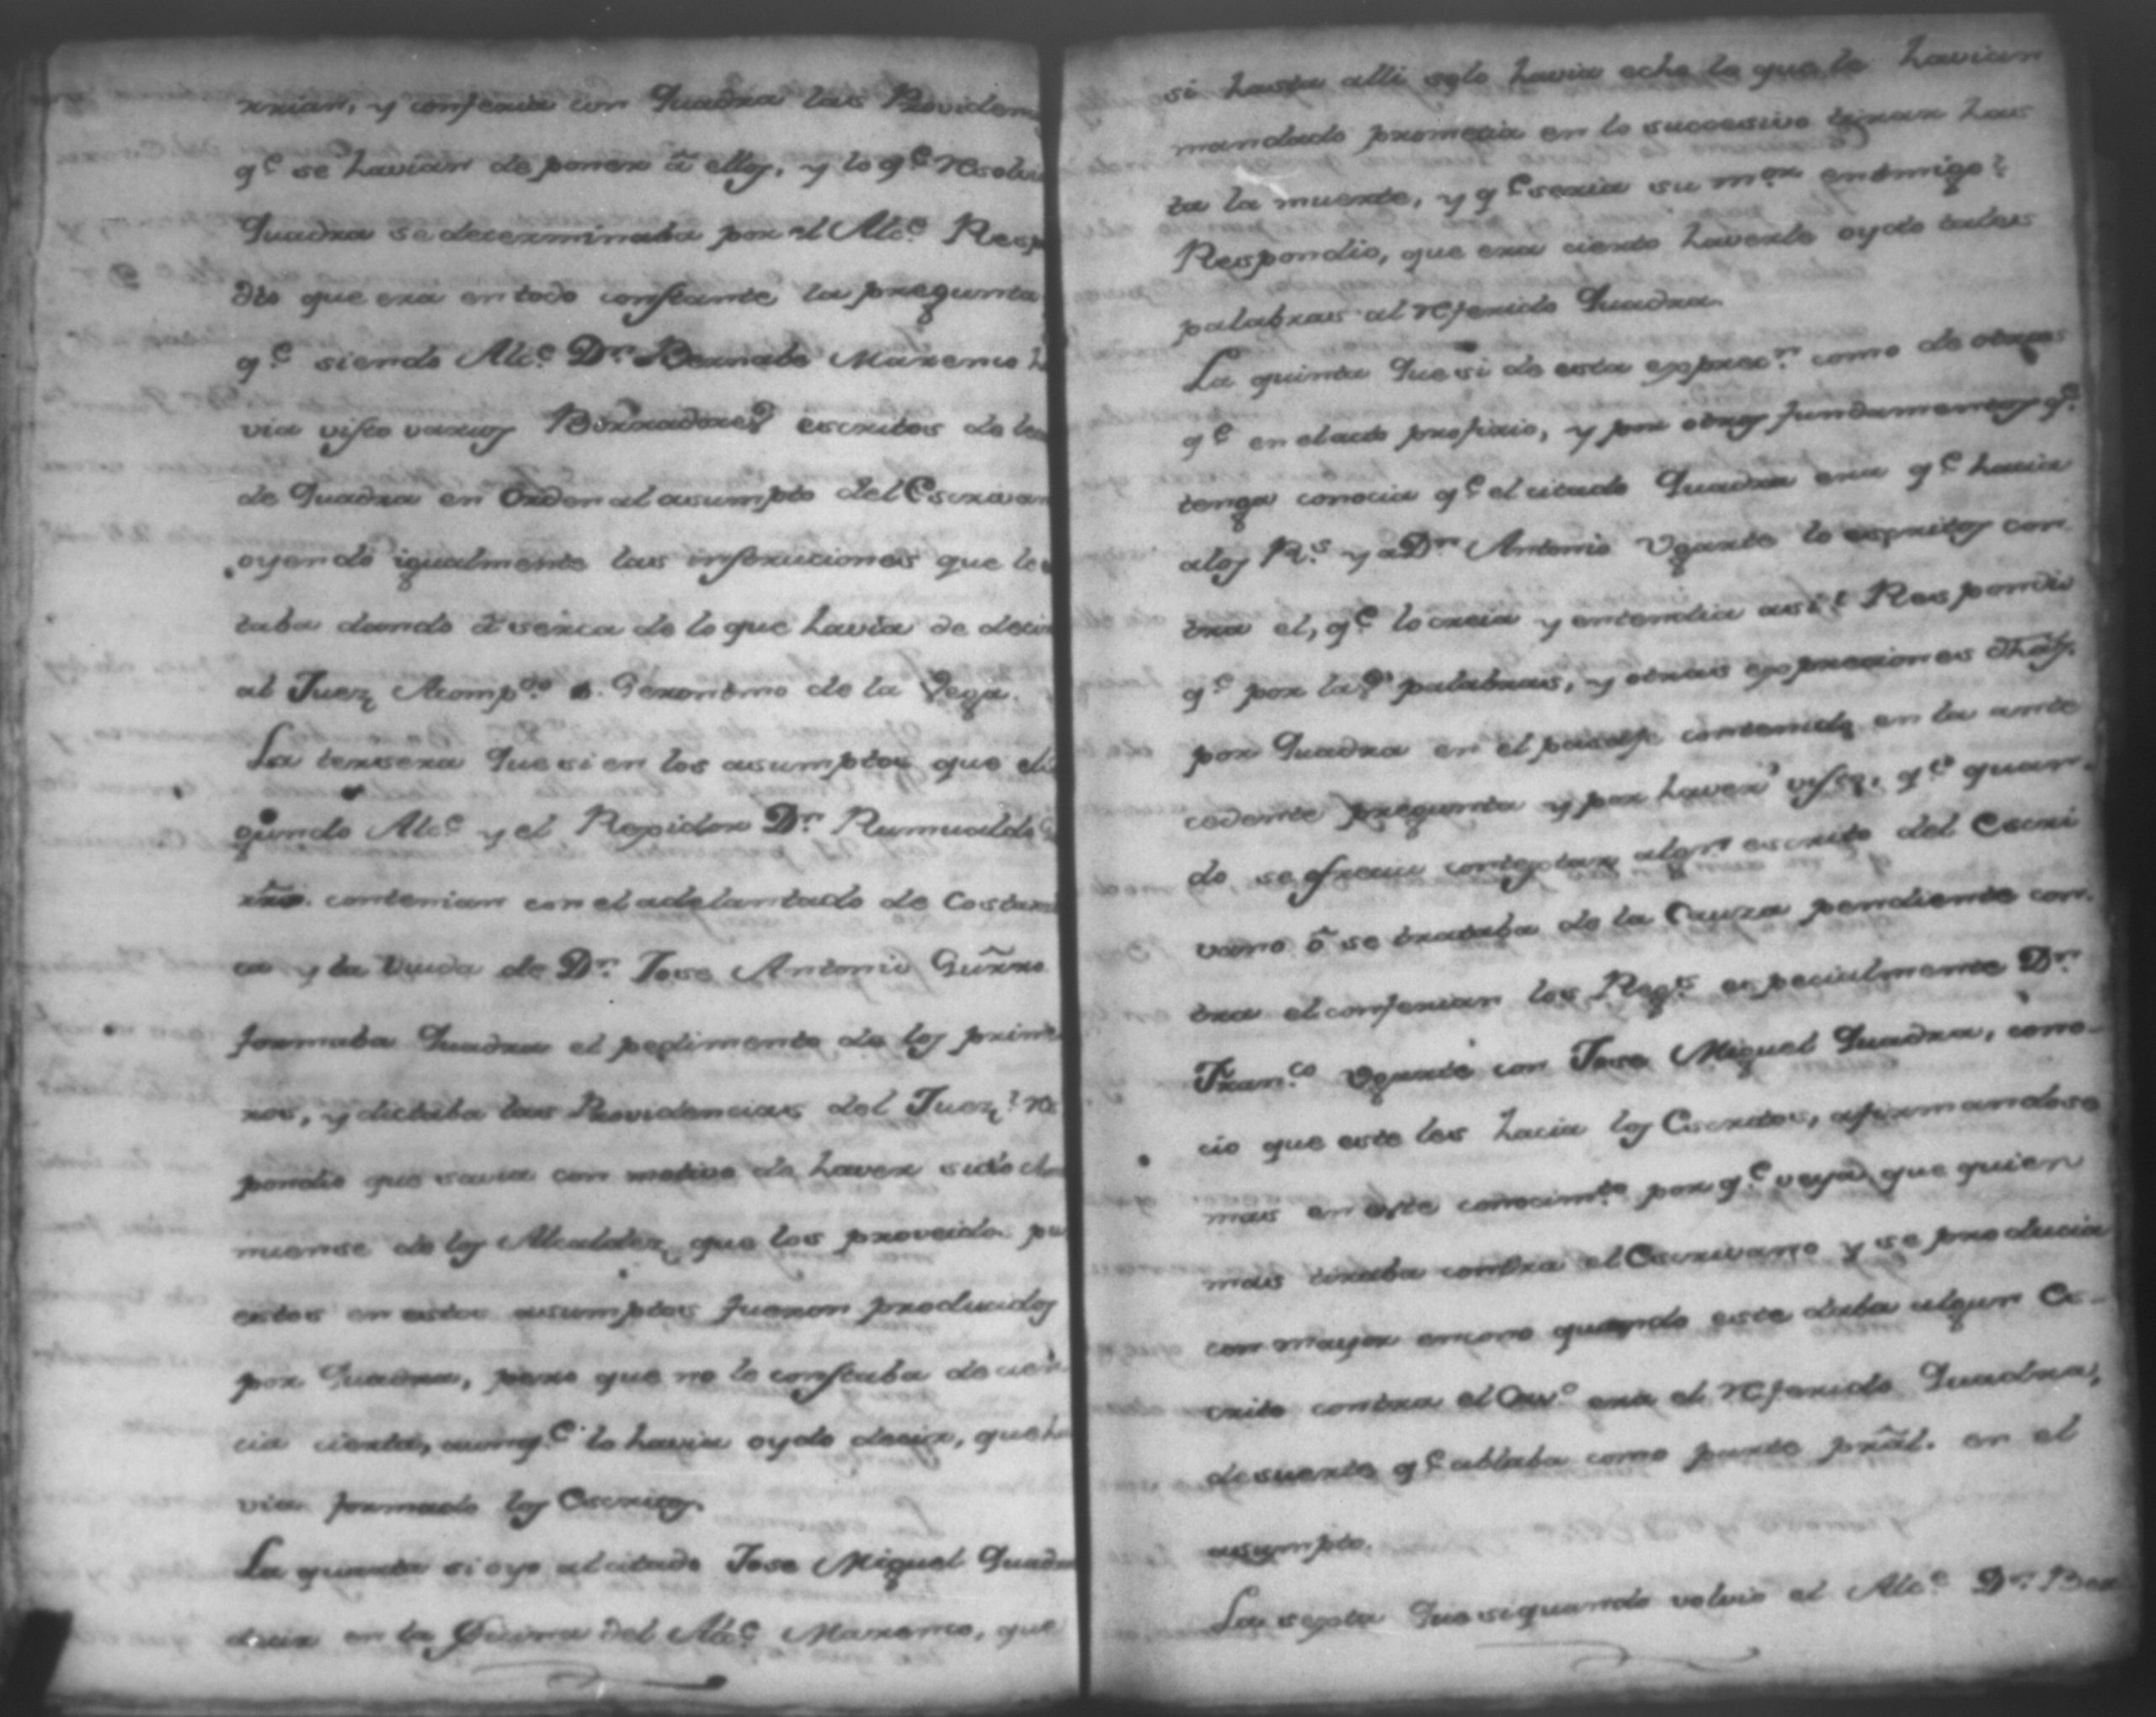 rrian, y conferia con Quadra las Providen
q.e se havian de poner â ellos, y lo q.e resolvi
Quadra se determinaba por el Alc.e Resp
dio que era en todo constante la pregunta
q.e siendo Alc.e D.n Bernabe Marenco h
via visto varios Borradores escritos de le
de Quadra en orden al asumpto del Escrivan
oyendo igualmente las instruciones que le
taba dando â serca de lo que havia de decir
al Juez Acomp.do D. Geronimo de la Vega.
La tersera Que si en los asumptos que el
gundo Alc.e y el Regidor D.n Rumualdo
contenian con el adelantado de Costarri
ca y la Viuda de D.n Jose Antonio Guẽrro
formaba Quadra el pedimento de los prime
ros, y dictaba las Providencias del Juez? Re
pondio que savia con motivo de haver sido
nuense de los Alcaldez que los proveido
estos en estos asumptos fueron producidos
por Quadra, pero que no le constaba de cien
cia cierta, aunq.e lo havia oydo decir, que ha
via formado los Escritos.
La quarta si oyo al citado Jose Miguel Quadra
decir en la oficina del Alc.e Marenco, que
si hasta alli solo havia echo lo que le havian
mandado prometia en lo succesivo tirar has
ta la muerte, y q.e seria su m.or enemigo?
Respondio, que era cierto haverle oydo tales
palabras al referido Quadra.
La quinta Que si de esta exprec.n como de otras
q.e en el acto profirio, y por otros fundamentos q.e
tenga conocia q.e el citado Quadra era q.e hacia
a los R.s y a D.n Antonio Ugarte lo escritos con
tra el, q.e lo creia y entendia asi? Respondio
q.e por las palabras, y otras expreciones dhas.
por Quadra en el pasaje contenido en la ante
cedente pregunta y por haver visto, q.e quan-
do se ofrecia contextar algn escrito del Escri
vano ô se trataba de la Causa pendiente con-
tra el conferian los Reg.s especialmente D.n
Fran.co Ugarte con Jose Miguel Quadra, cono-
cio que este les hacia los Escritos, afirmandose
mas en este conocim.to por q.e veya que quien
mas tiraba contra el Escrivano y se producia
con mayor encono quando este daba algun Es-
crito contra el era el referido Quadra,
de suerte q.e ablaba como parte prãl. en el
asumpto.
La sexta Que si quando volvio el Alc.e D.n Ber